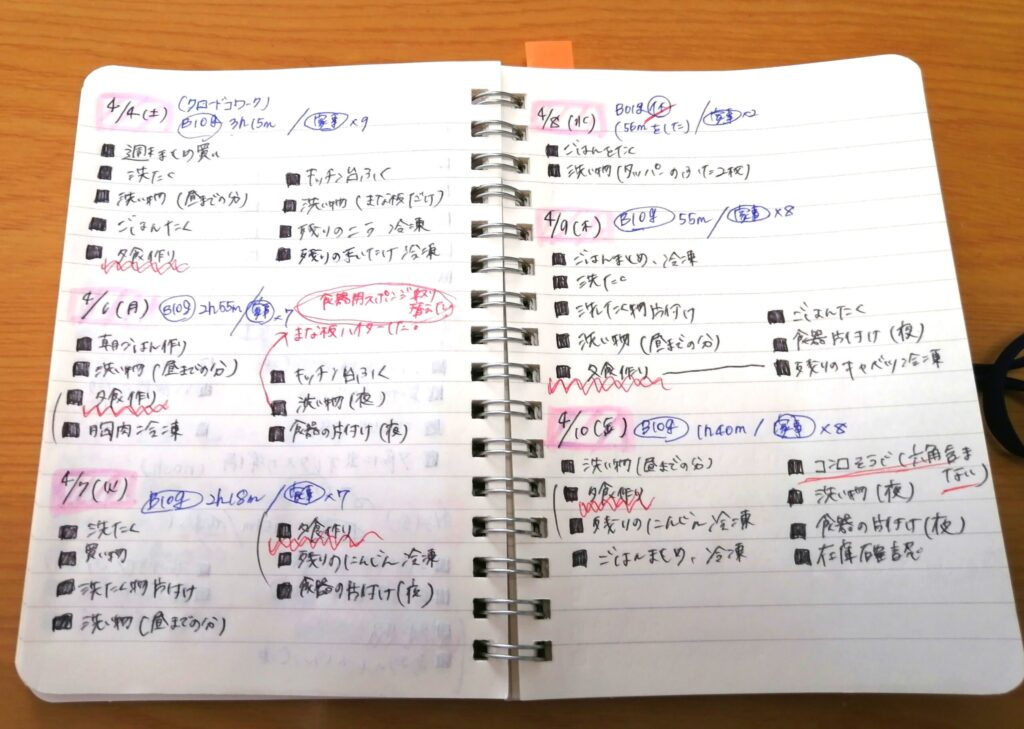 4/4(土)
(クロードコワーク)
Blog 3h15m / 家事 ×9
■ 週末まとめ買い
■ 洗たく
■ 洗い物(昼までの分)
■ ごはんたく
■ 夕食作り
■ キッチン台ふく
■ 洗い物(まな板だけ)
■ 残りのこう 冷凍
■ 残りのまいたけ 冷凍
4/6(月) Blog 2h55m / 家事 ×7
食器用スポンジ取り替えた
まな板ハイターした。
■ 朝ごはん作り
■ 洗い物(昼までの分)
■ 夕食作り
■ 胸肉冷凍
■ キッチン台ふく
■ 洗い物(夜)
■ 食器の片付け(夜)
4/7(火) Blog 2h18m / 家事 ×7
■ 洗たく
■ 買い物
■ 洗たく物片付け
■ 洗い物(昼までの分)
■ 夕食作り
■ 残りのにんじん冷凍
■ 食器の片付け(夜)
4/8(水)
Blog 休
(56mをした) / 家事 ×2
■ ごはんをたく
■ 洗い物(タッパーのふた2枚)
4/9(木) Blog 55m / 家事 ×8
■ ごはんまとめ、冷凍
■ 洗たく
■ 洗たく物片付け
■ 洗い物(昼までの分)
■ 夕食作り
■ ごはんたく
■ 食器片付け(夜)
■ 残りのキャベツ冷凍
4/10(金) Blog 1h40m / 家事 ×8
■ 洗い物(昼までの分)
■ 夕食作り
■ 残りのにんじん冷凍
■ ごはんまとめ、冷凍
■ コンロそうじ(六角含まない)
■ 洗い物(夜)
■ 食器の片付け(夜)
■ 在庫確認